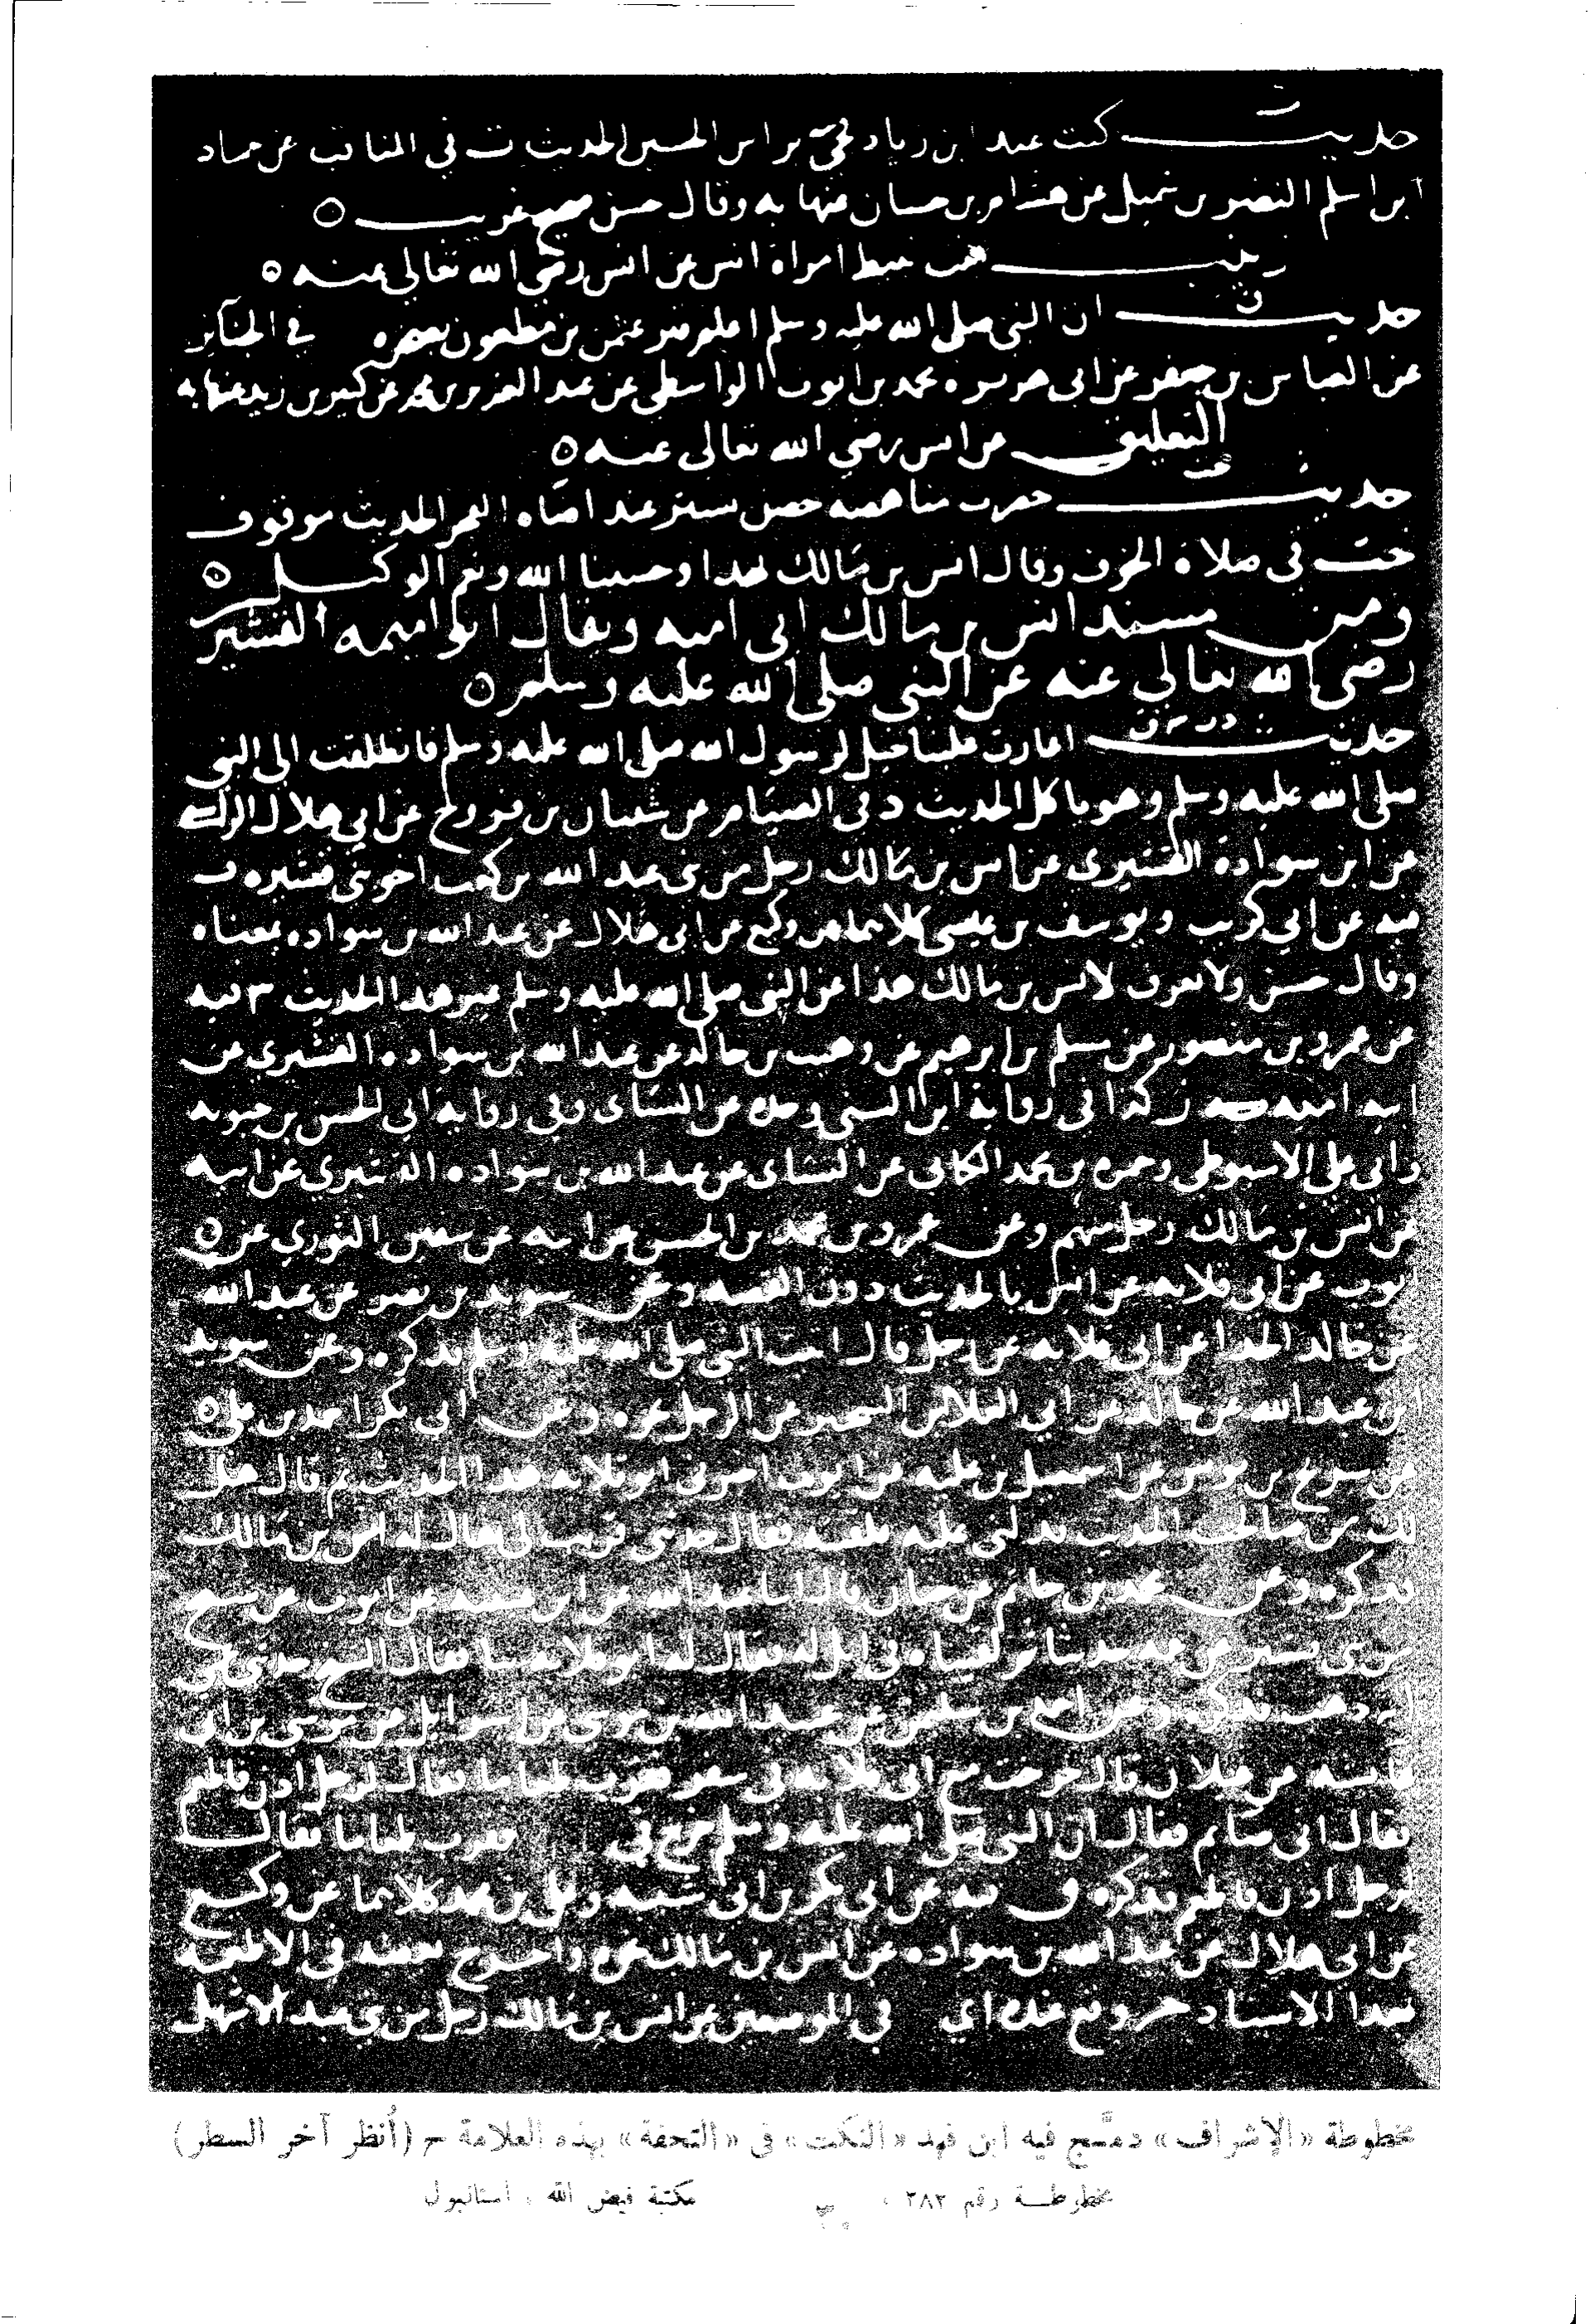 حديث كنت عند ابن زياد فجيء براس الحسين الحديث ت في المناقب عن خلاد
ابن اسلم النضر بن شميل عن هشام بن حسان عنها به وقال حسن صحيح غريب
زينب بنت نبيط امراة انس عن انس رضي الله تعالى عنه
حديث ان النبي صلى الله عليه وسلم اعلم قبر عثمن بن مظعون بصخره في الجنائز
عن العباس بن جعفر عن ابي هريره محمد بن ايوب الواسطي عن عبد العزيز بن محمد عن كثير بن زيد عنها به
التعليق عن انس رضي الله تعالى عنه
حديث حضرت مناهضه حصن تستر عند اضاه الفجر الحديث موقوف
خت في صلاة الخوف وقال انس بن مالك بهذا وحسبنا الله ونعم الوكيل
ومن مسند انس بن مالك ابي اميه ويقال ابو اميمه القشيري
رضي الله تعالى عنه عن النبي صلى الله عليه وسلم
حديث اغارت علينا خيل لرسول الله صلى الله عليه وسلم فانطلقت الى النبي
صلى الله عليه وسلم وهو ياكل الحديث د في الصيام عن شيبان بن فروخ عن ابي هلال الراسبي
عن ابن سوادة القشيري عن انس بن مالك رجل من بني عبد الله بن كعب اخوة بني قشيره ت
فيه عن ابي كريب ويوسف بن عيسى كلاهما عن وكيع عن ابي هلال عن عبد الله بن سواده بمعناه
وقال حسن ولا نعرف لانس بن مالك هذا عن النبي صلى الله عليه وسلم غير هذا الحديث س فيه
عن عمرو بن منصور عن مسلم بن ابرهيم عن وهيب بن خالد عن عبد الله بن سواده القشيري عن
ابيه عنه كذا في رواية ابن السني وحده عن النساي وفي رواية ابي الحسن بن حيويه
وابي علي الاسيوطي وحمزه بن محمد الكناني عن النساي عن عبد الله بن سواده القشيري عن ابيه
عن انس بن مالك رجل منهم وعن عمرو بن محمد بن الحسن عن ابيه عن سفين الثوري عن
ايوب عن ابي قلابه عن انس بالحديث دون القصه وعن سويد بن نصر عن عبد الله
عن خالد الحذا عن ابي قلابه عن رجل قال اتيت النبي صلى الله عليه وسلم فذكره وعن سويد
ابن عبد الله عن خالد عن ابي العلا بن الشخير عن الرجل نحوه وعن ابي بكر احمد بن علي
عن سريج بن يونس عن اسمعيل بن عليه عن ايوب اخبرني ابو قلابه هذا الحديث ثم قال هل
لك في صاحب الحديث فدلني عليه فلقيته فقال حدثني قريب لي يقال له انس بن مالك
فذكره وعن محمد بن حاتم عن حبان قال انا عبد الله عن ابن عيينه عن ايوب عن شيخ
من بني قشير عن عمه حدثنا ثم لقيناه في ابل له فقال له ابو قلابه حدثنا فقال الشيخ حدثني عمي
انه ذهب فذكره وعن احمد بن سليمن عن عبيد الله بن موسى عن اسرائيل عن موسى بن ابي
عايشه عن غيلان قال خرجت مع ابي قلابه في سفر فقرب طعاما فقال لرجل ادن فاطعم
فقال اني صائم فقال ان النبي صلى الله عليه وسلم خرج في فقرب طعاما فقال
لرجل ادن فاطعم فذكره ق فيه عن ابي بكر بن ابي شيبه وعلي بن محمد كلاهما عن وكيع
عن ابي هلال عن عبد الله بن سواده عن انس بن مالك نحوه واخرج بعضه في الاطعمه
بهذا الاسناد في الموضعين عن انس بن مالك رجل من بني عبد الاشهل
مخطوطة «الإشراف» دمَّج فيه ابن فهد «النكت» في «التحفة» بهذه العلامة ح (أنظر آخر السطر)
مخطوطة رقم ٢٨٣ ، مكتبة فيض الله ، استانبول